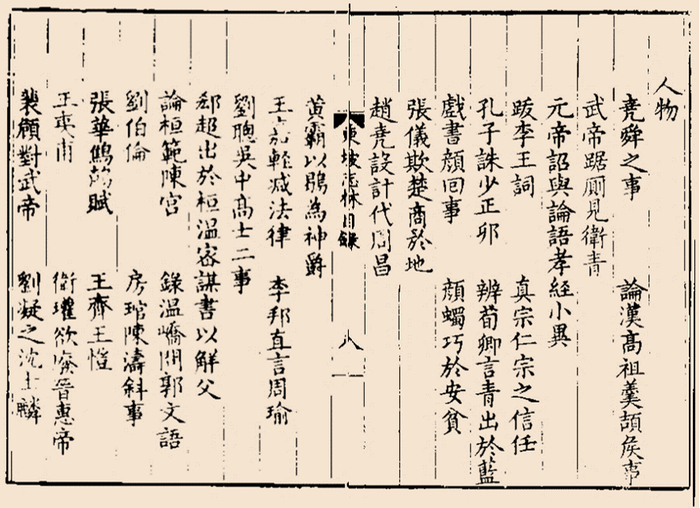 人物
堯舜之事　論漢高祖羹頡侯事
武帝踞厠見衛青
元帝詔與論語孝經小異
跋李王詞　真宗仁宗之信任
孔子誅少正卯　辨荀卿言青出於藍
戲書顔回事　顔蠋巧於安貧
張儀欺楚商於地
趙堯設計代周昌
東坡志林目録　八
黄霸以鶡為神爵
王嘉輕減法律　李邦直言周瑜
劉聰吳中高士二事
郄超出於桓溫密謀書以解父
論桓範陳宫　錄溫嶠問郭文語
劉伯倫　房琯陳濤斜事
張華鷦鷯賦　王齊王愷
王夷甫　衛瓘欲廢晉惠帝
裴頠對武帝　劉凝之沈士麟